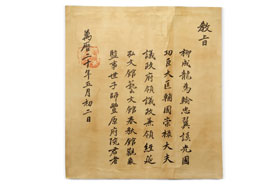 教旨
柳成龍為輸忠翼謨光國
功臣大匡輔國崇祿大夫
議政府領議政兼領經筵
弘文館藝文館春秋館觀象
監事世子師豐原府院君者
萬曆二十年五月初二日